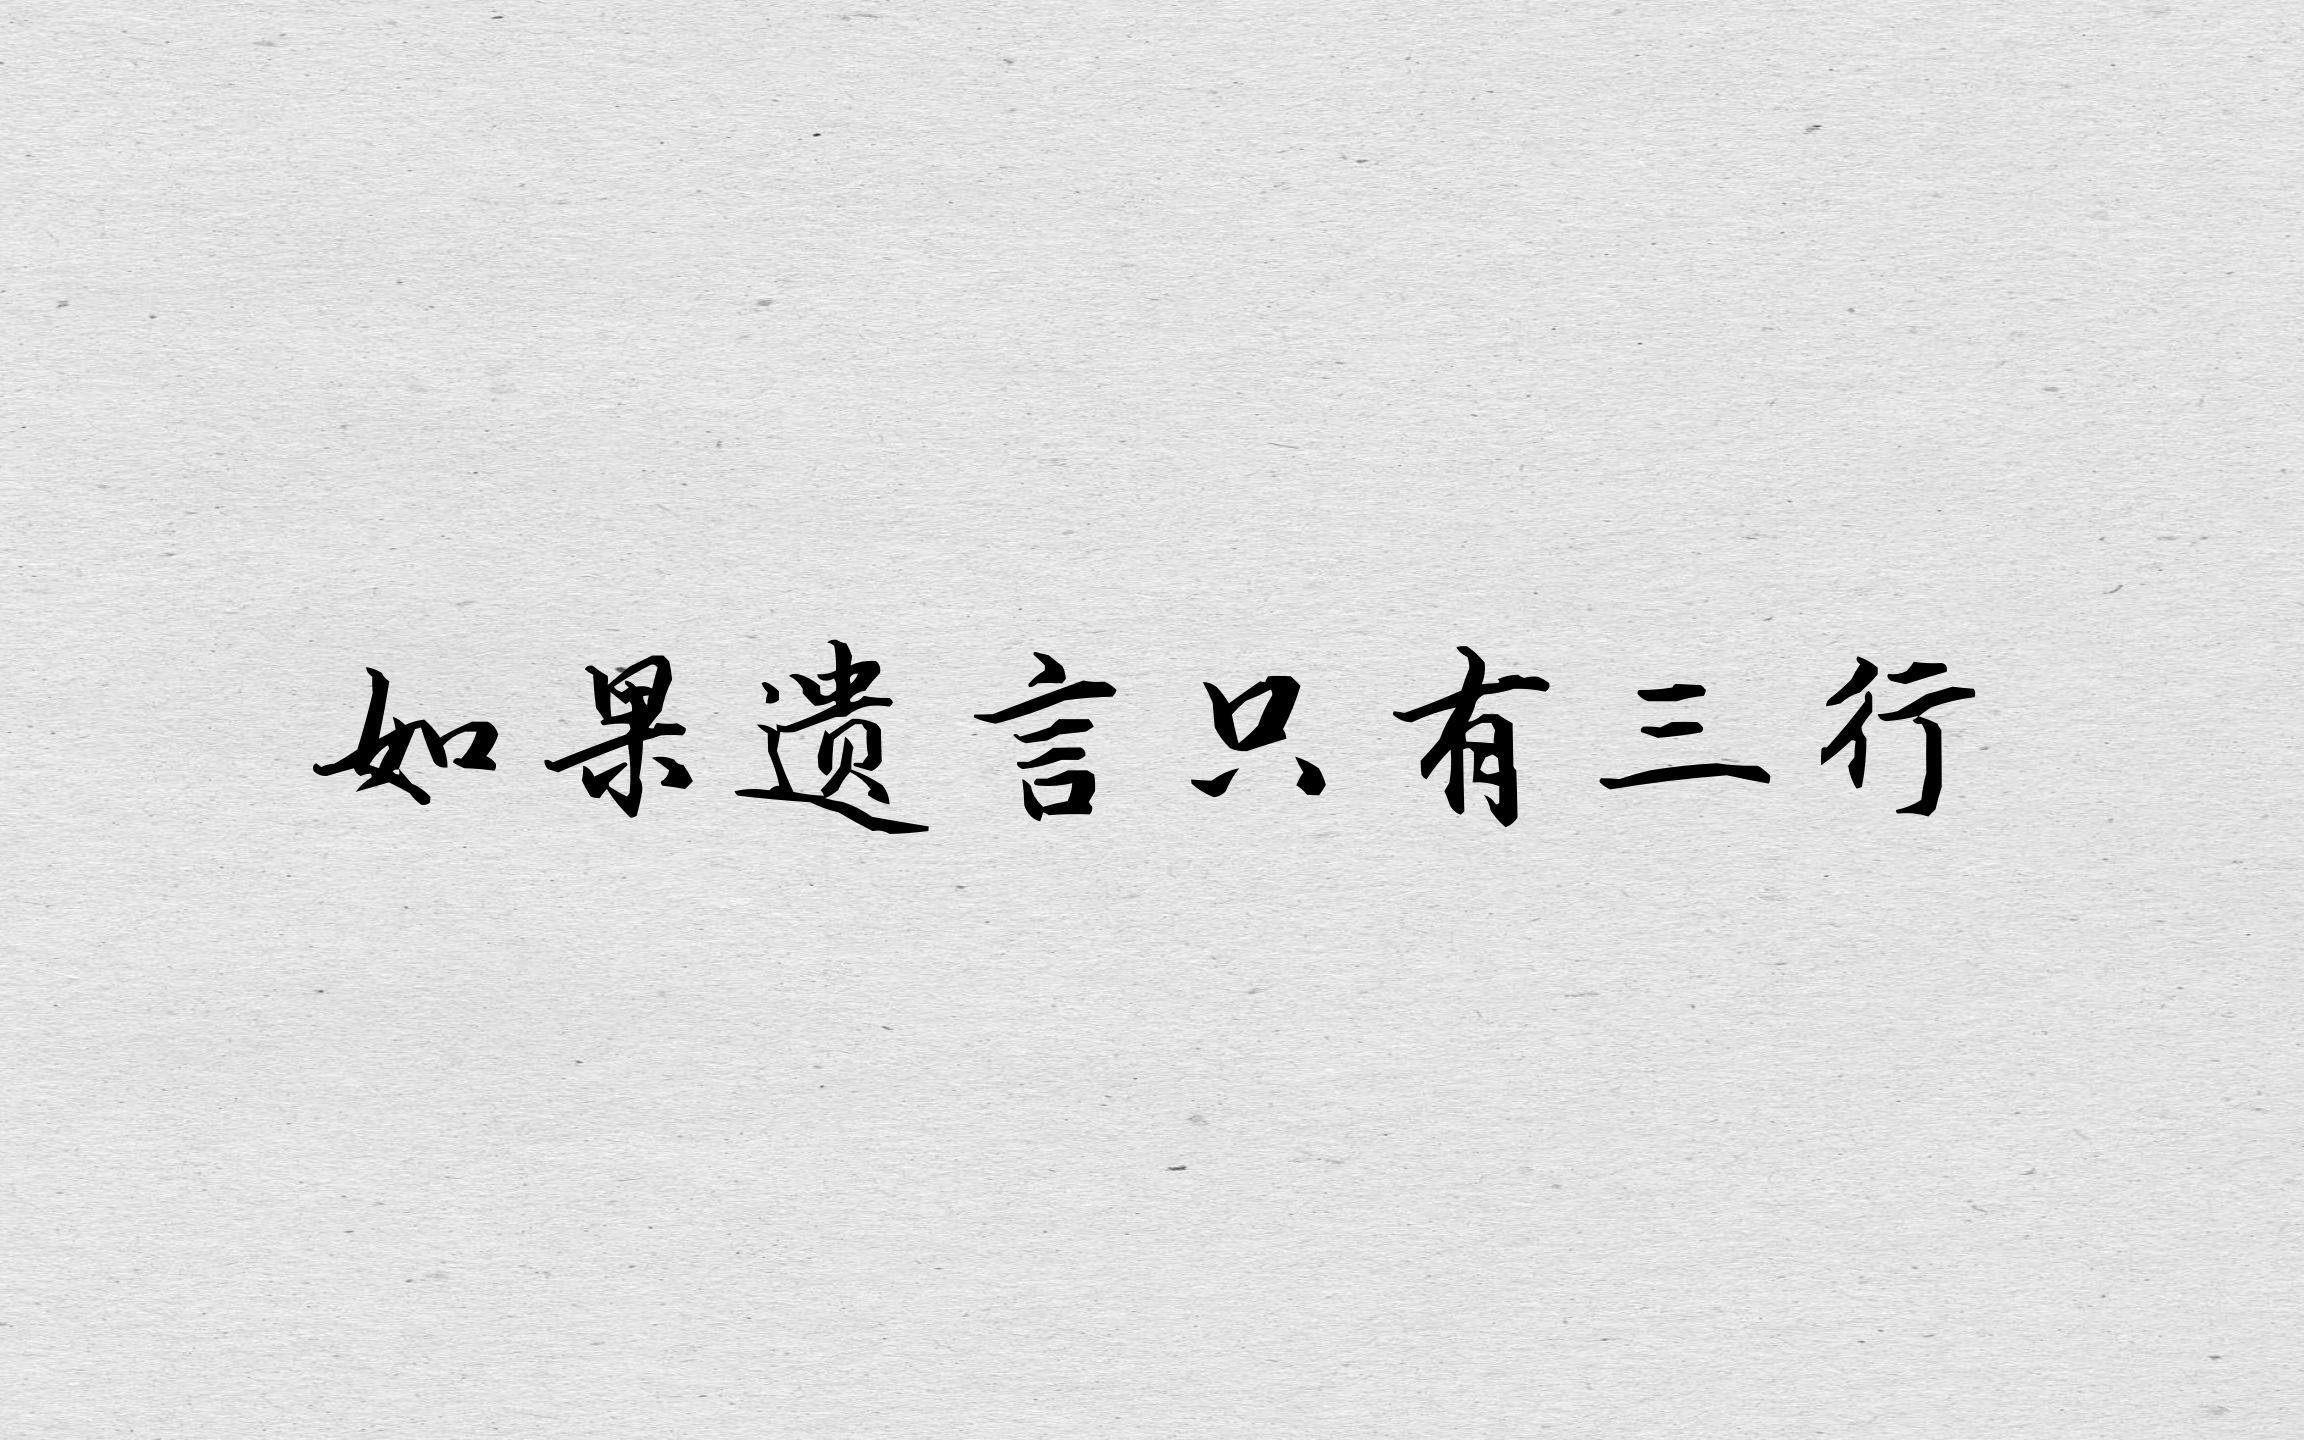 如果遗言只有三行